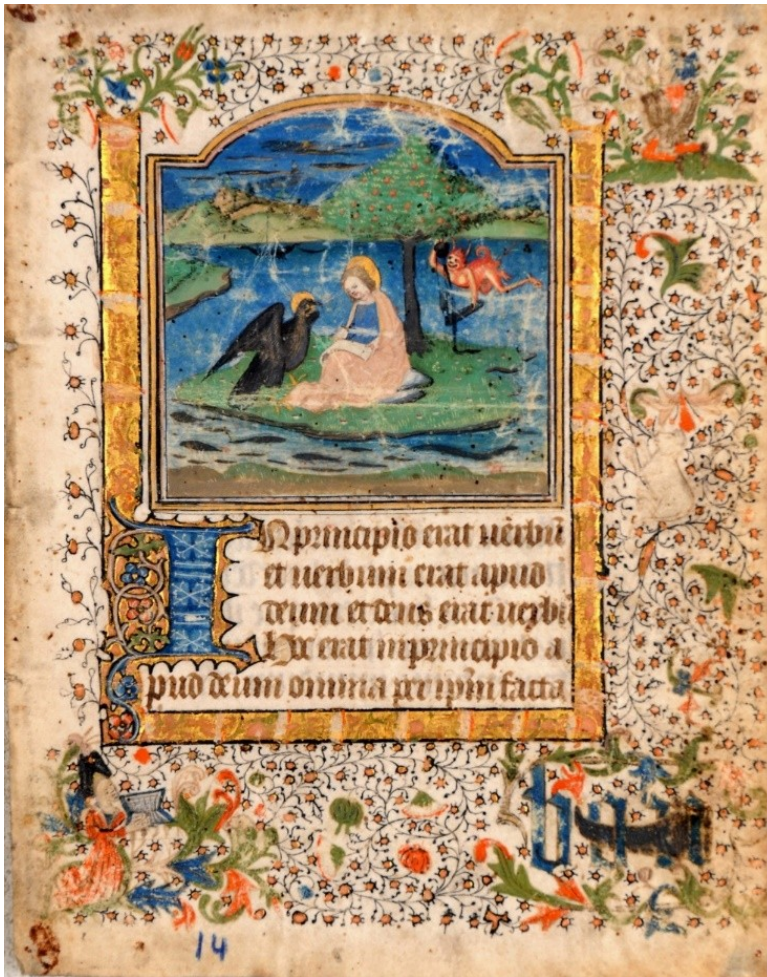 In principio erat uerbū
et uerbum erat apud
deum et deus erat uerbū
Hoc erat in principio a
pud deum omnia per ipm̄ facta
14